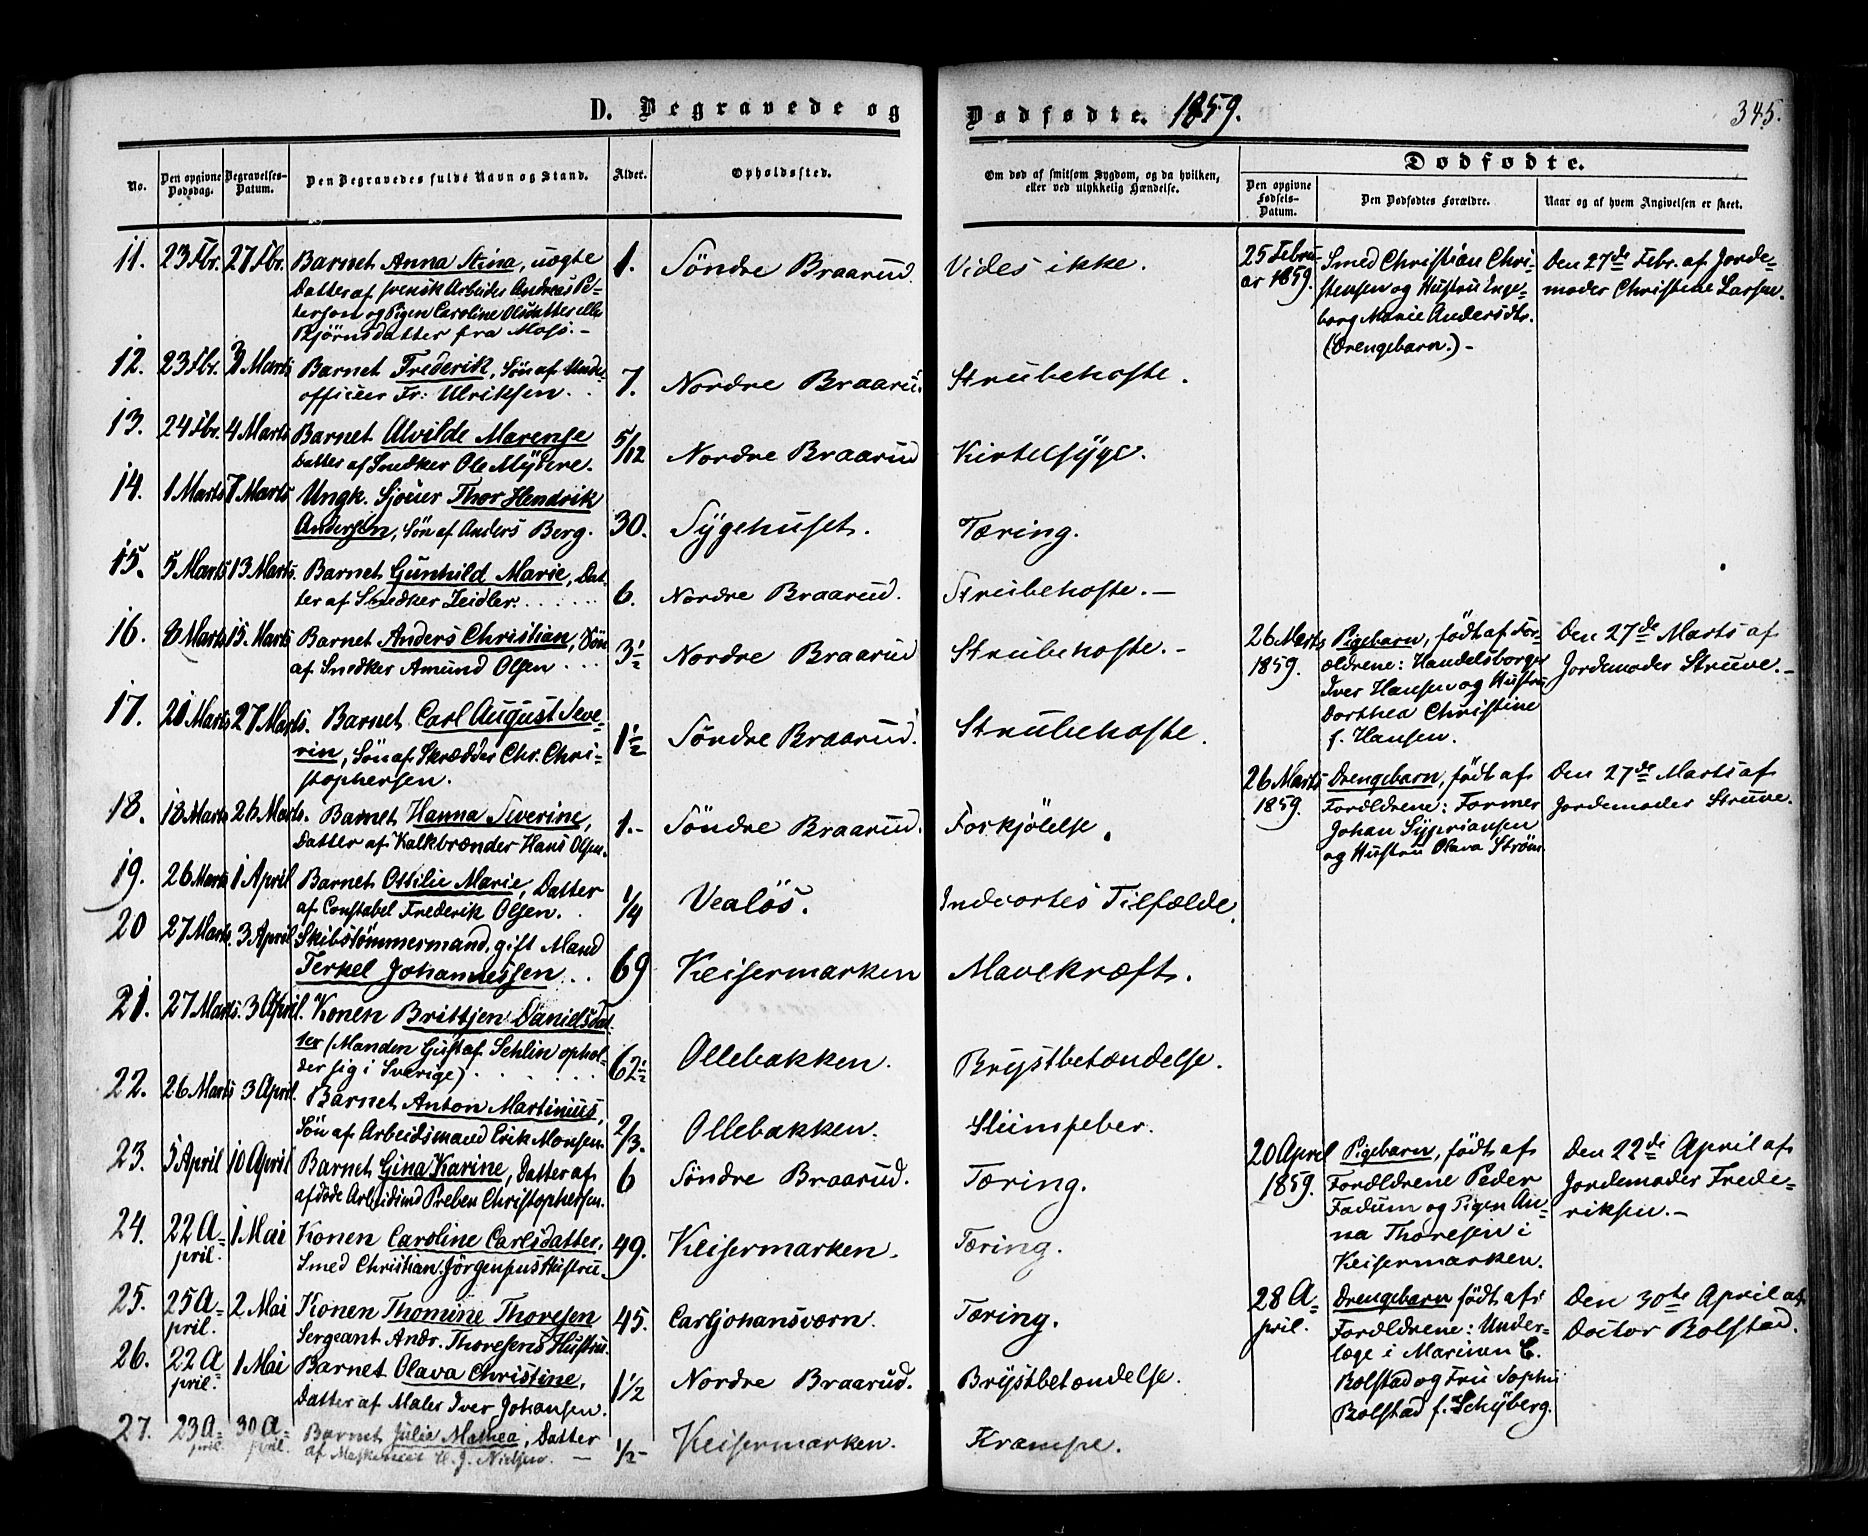 D. Begravede og
Dødfødte. 1859.
345.
No.
Den opgivne Dødsdag.
Begravelses-Datum.
Den Begravedes fulde Navn og Stand.
Alder.
Opholdssted.
Om død af smitsom Sygdom, og da hvilken, eller ved ulykkelig Hændelse.
Dødfødte.
Den opgivne Fødsels-Datum.
Den Dødfødtes Forældre.
Naar og af hvem Angivelsen er skeet.
11. 23 Fbr. 27 Fbr. Barnet Anna Stina, uægte 1. Söndre Braarud. Vides ikke.
Datter af svensk Arbeider Andreas Pe-
terson og Pigen Caroline Olsdatter eller
Björnsdatter fra Moss.-
25 Febru-
ar 1859.
Smed Christian Chri-
stensen og Hustru Inge-
borg Marie Andersdtr.
(Drengebarn.)-
Den 27de Febr. af Jorde-
moder Christine Larsen.
12. 23 Fbr. 3 Marts Barnet Frederik, Søn af Under-
officier Fr: Ulriksen. . 7. Nordre Braarud. Strubehoste.
13. 24 Fbr. 4 Marts Barnet Alvilde Marense
Datter af Snedker Ole Myhre. 5/12 Nordre Braarud Kirtelsyge.
14. 1 Marts 7 Marts Ungk. Sjouer Thor Hendrik
Andersen, Søn af Anders Berg. 30. Sygehuset. Tæring.
15. 5 Marts 13 Marts. Barnet Gunhild Marie, Dat-
ter af Snedker Zeidler. . . . . . 6. Nordre Braarud. Strubehoste.-
16. 8 Marts 15. Marts Barnet Anders Christian, Søn
af Snedker Amund Olsen . . . 3½ Nordre Braarud Strubehoste.-
26 Marts
1859.
Pigebarn, født af For-
ældrene: Handelsborger
Iver Hansen og Hustru
Dorthea Christine
f. Hansen.
Den 27de Marts af
Jordemoder Struve.-
17. 21 Marts 27 Marts. Barnet Carl August Seve-
rin, Søn af Skrædder Chr. Chri-
stophersen. 1½ Söndre Braarud. Strubehoste.
26 Marts
1859.
Drengebarn, født af
Forældrene: Former
Johan Sypriansen
og Hustru Olava Strøm
Den 27de Marts af
Jordemoder Struve.
18. 18 Marts 26 Marts. Barnet Hanna Severine,
Datter af Kalkbrænder Hans Olsen. 1.- Söndre Braarud. Forkjölelse.
19. 26 Marts 1 April Barnet Ottilie Marie, Datter
af Constabel Frederik Olsen. . 1/4 Vealös. Indvortes Tilfælde.
20 27 Marts. 3 April Skibstömmermand, gift Mand
Terkel Johannessen . . 69 Keisermarken Mavekræft.
21. 27 Marts. 3 April. Konen Brittjen Danielsdat-
ter (Manden Gustaf Sehlin ophol-
der sig i Sverige) . . . . . 62½ Ollebakken. Brystbetændelse.
22. 26 Marts 3 April. Barnet Anton Martinius,
Søn af Arbeidsmand Erik Monsen. 2/3. Ollebakken. Sliimfeber.
23. 5 April 10 April Barnet Gina Karine, Datter af
afdøde Arbeidsmd Preben Christophersen. 6 Söndre Braarud. Tæring.
20 April
1859.
Pigebarn, født af
Forældrene Peder
Fadum og Pigen An-
na Thoresen i
Keisermarken.
Den 22de April af
Jordemoder Frede-
riksen.-
24. 22 A-
pril. 1 Mai Konen Caroline Carlsdatter,
Smed Christian Jörgensens Hustru. 49. Keisermarken. Tæring.
25. 25 A-
pril. 2 Mai Konen Thomine Thoresen
Sergeant Andr. Thoresens Hustru. 45. Carljohansværn. Tæring.
28 A-
pril.
Drengebarn født af
Forældrene: Under-
læge i Marinen C.
Bolstad og Fru Sophie
Bolstad f. Schyberg.
Den 30te April af
Doctor Bolstad.
26. 22 A-
pril. 1 Mai Barnet Olava Christine,
Datter af Maler Iver Johansen. 1½ Nordre Braarud. Brystbetændelse.
27. 23 A-
pril. 30 A-
pril. Barnet Julie Mathea, Datter
af H. J. Nielsen. - ½- Keisermarken. Krampe.